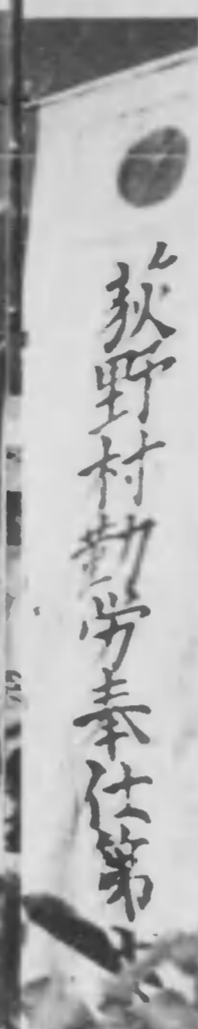 荻野村勤労奉仕第